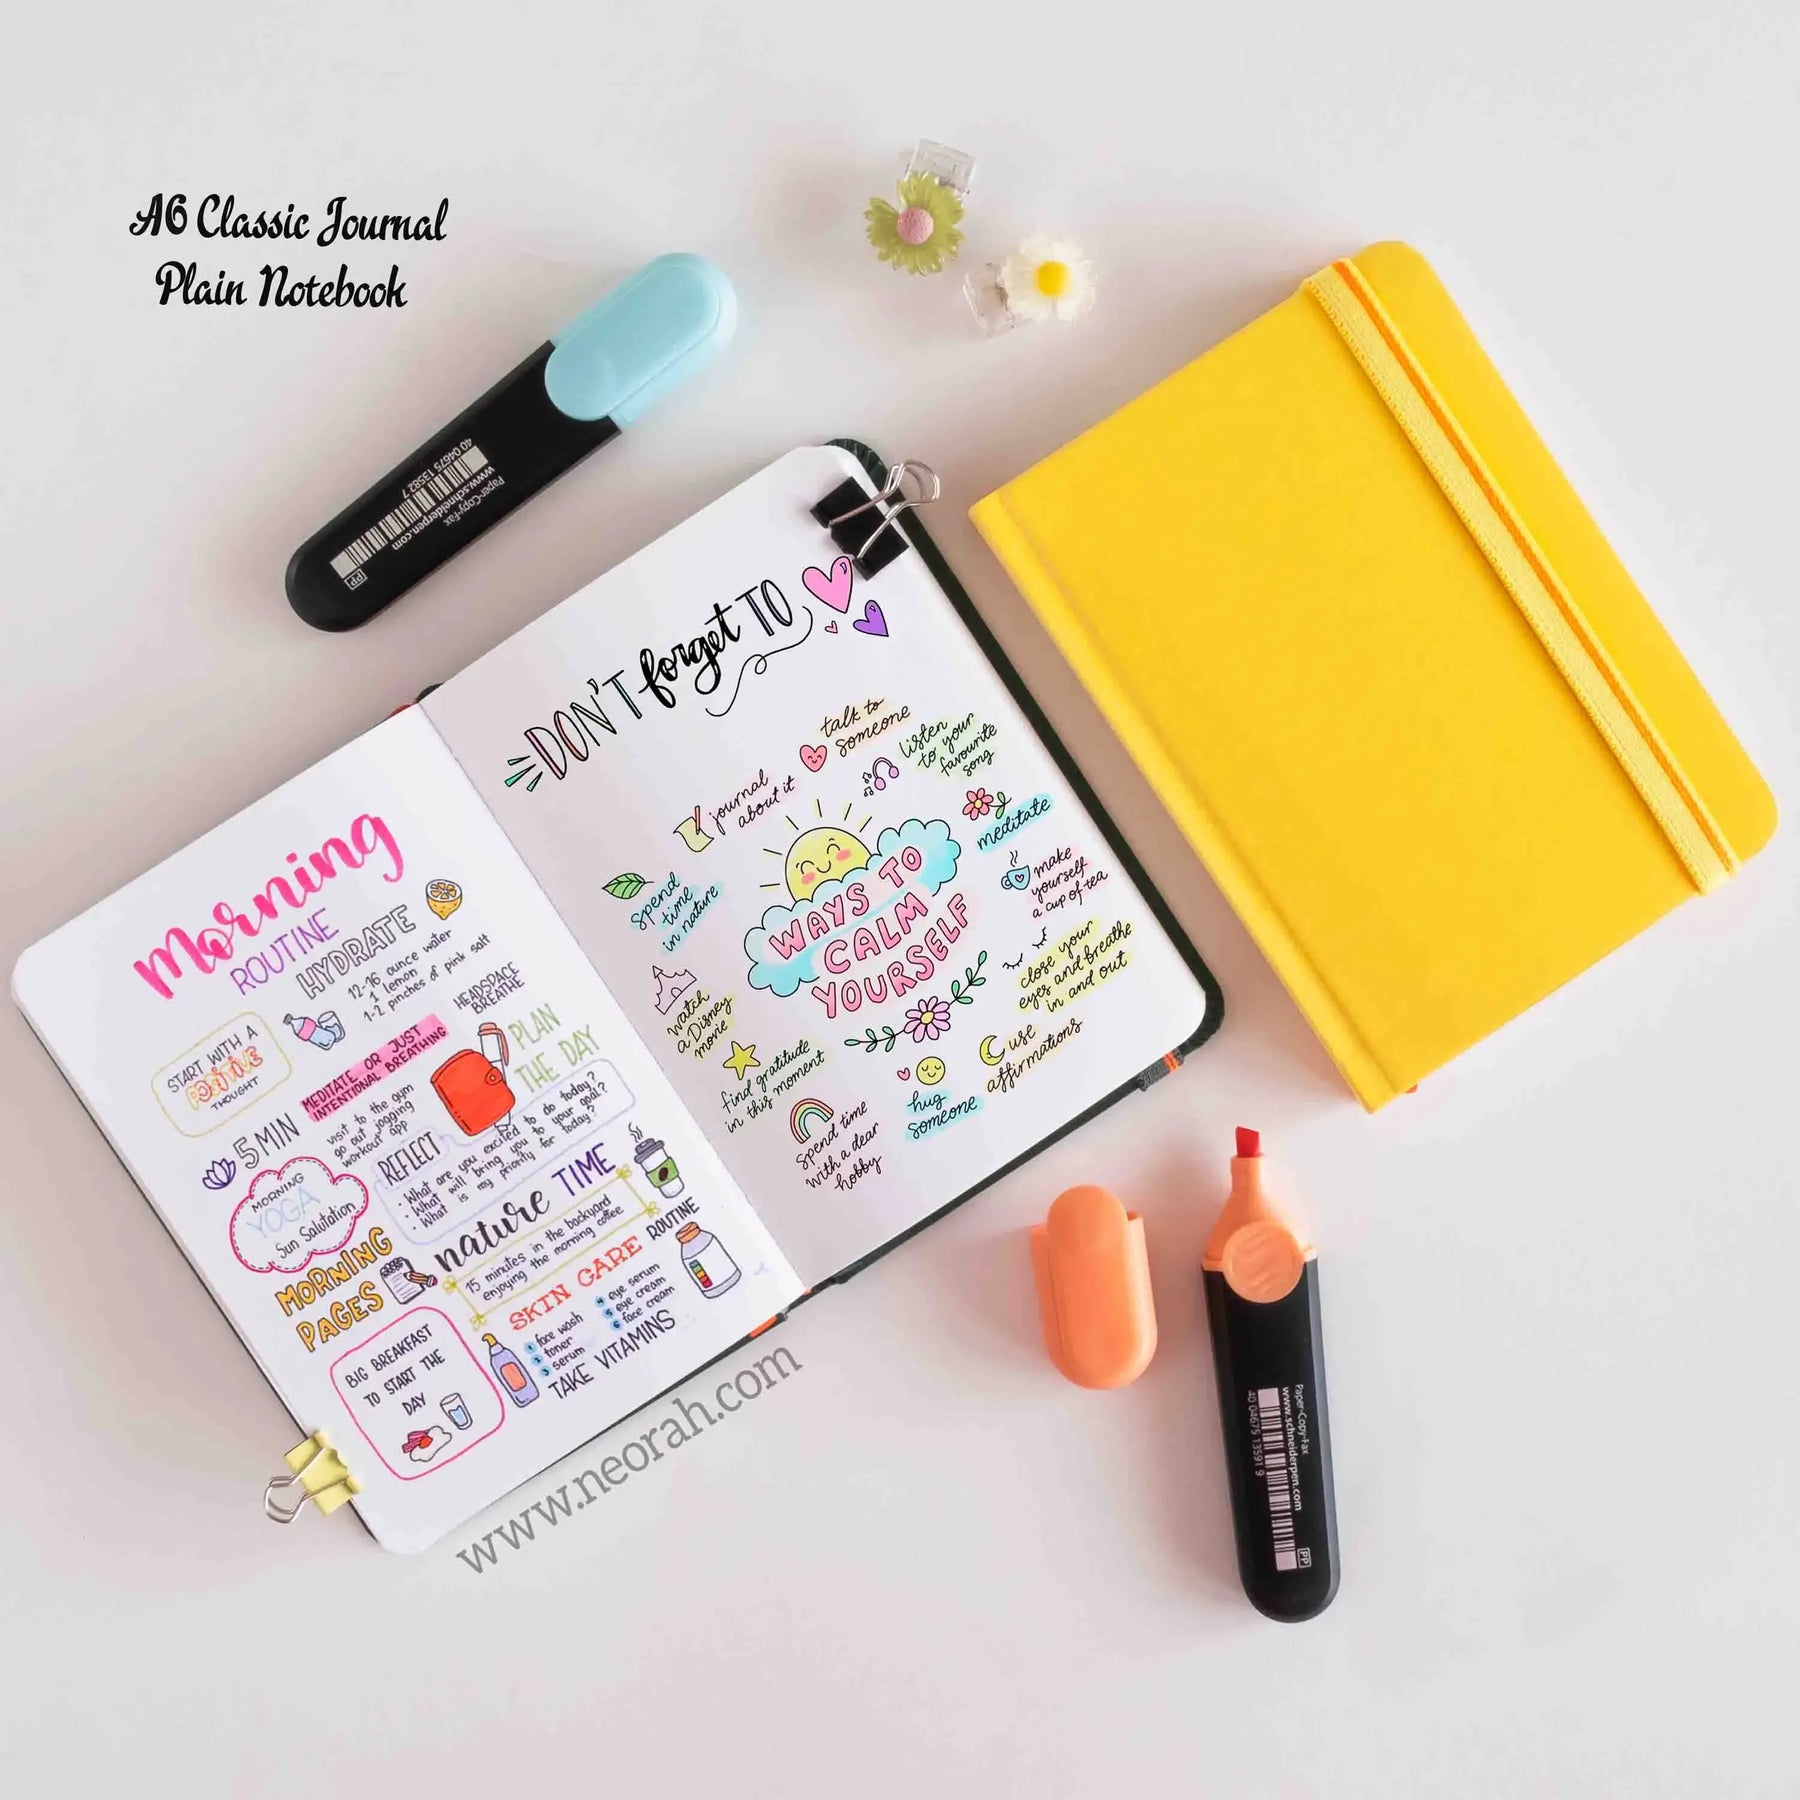 A6 Classic Journal
Plain Notebook
Paper-Copy-Fax
www.schneiderpen.com
40 04675 13582 7
PP
Morning
ROUTINE
HYDRATE
12-16 ounce water
1 lemon
1-2 pinches of pink salt
START WITH A
POSITIVE
THOUGHT
5 MIN
MEDITATE OR JUST
INTENTIONAL BREATHING
HEADSPACE
BREATHE
visit to the gym
go out jogging
workout app
PLAN
THE DAY
REFLECT
• What are you excited to do today?
• What will bring you to your goal?
• What is my priority for today?
MORNING
YOGA
Sun Salutation
nature TIME
15 minutes in the backyard
enjoying the morning coffee
MORNING
PAGES
SKIN CARE ROUTINE
1 face wash
2 toner
3 serum
4 eye serum
5 eye cream
6 face cream
TAKE VITAMINS
BIG BREAKFAST
TO START THE
DAY
DON'T forget TO
talk to
someone
listen
to your
favourite
song
journal
about it
meditate
spend
time
in nature
WAYS TO
CALM
YOURSELF
make
yourself
a cup of tea
close your
eyes and breathe
in and out
watch
a Disney
movie
use
affirmations
find gratitude
in this moment
hug
someone
spend time
with a dear
hobby
www.neorah.com
Paper-Copy-Fax
www.schneiderpen.com
40 04675 13591 9
PP